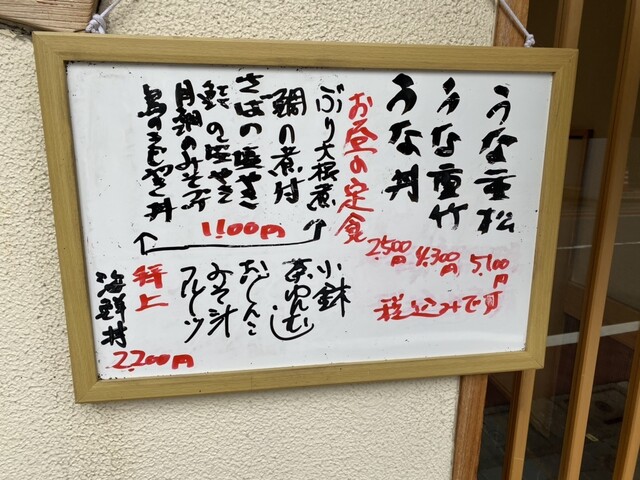 うな重松
5,100円
うな重竹
4,300円
うな丼
2,500円
税込みです
お昼の定食
ぶり大根煮
鯛の煮付
さばの塩やき
鮭の塩やき
鳥の
1,100円
小鉢
茶わんむし
おしんこ
みそ汁
フルーツ
海鮮丼
2,200円